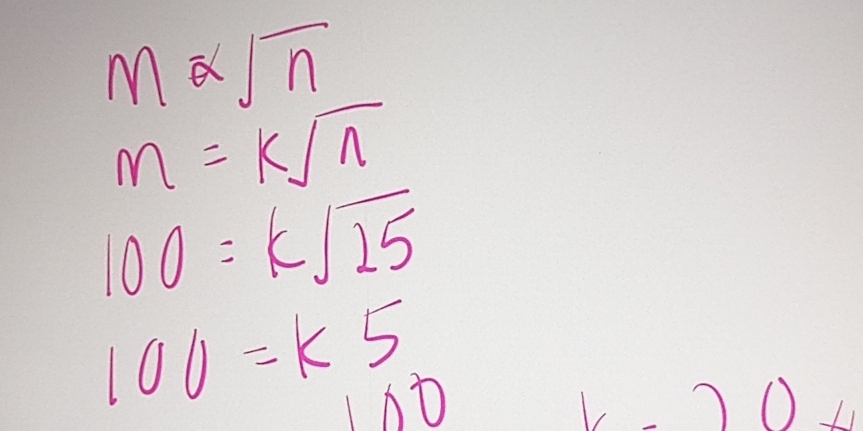 m ∝ √n
m = k√n
100 = k√25
100 = k 5
100 k = 20 #